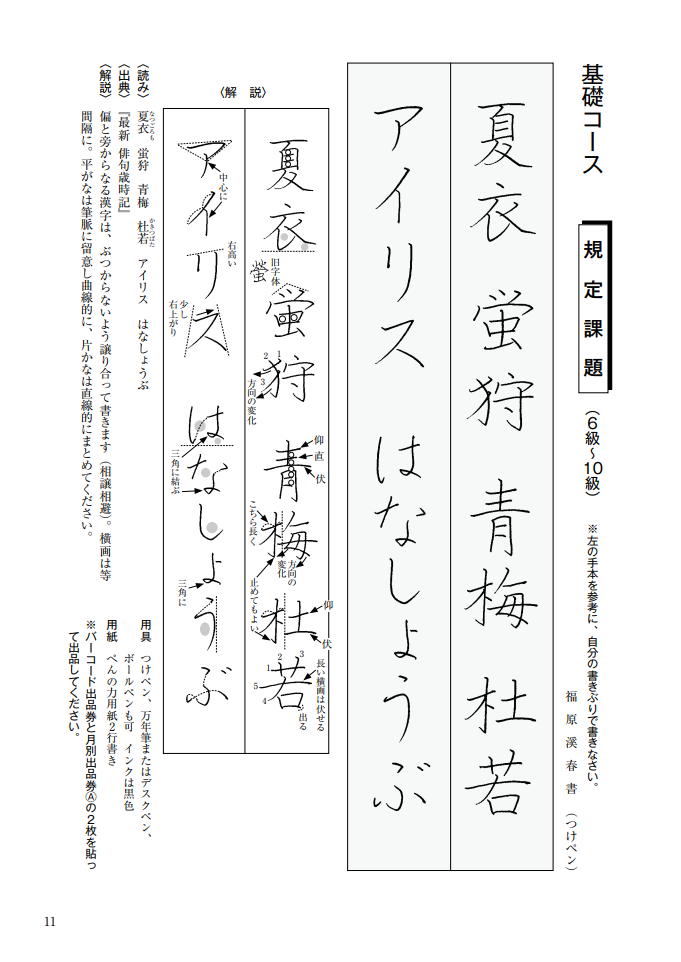 基礎コース
規定課題
（6級～10級）
※左の手本を参考に、自分の書きぶりで書きなさい。
福原溪春書（つけペン）
夏衣　蛍狩　青梅　杜若
アイリス　はなしょうぶ
〈解　説〉
夏衣　蛍狩　青梅　杜若
旧字体
螢
1
2
3
方向の変化
仰
直
伏
こちら長く
方向の変化
止めてもよい
仰
伏
長い横画は伏せる
1
2
3
4
5
出る
アイリス　はなしょうぶ
中心に
右高い
少し右上がり
三角に結ぶ
三角に
〈読み〉　夏衣　蛍狩　青梅　杜若　アイリス　はなしょうぶ
なつごろも
かきつばた
〈出典〉　『最新 俳句歳時記』
〈解説〉　偏と旁からなる漢字は、ぶつからないよう譲り合って書きます（相譲相避）。横画は等
間隔に。平がなは筆脈に留意し曲線的に、片かなは直線的にまとめてください。
用具　つけペン、万年筆またはデスクペン、
ボールペンも可　インクは黒色
用紙　ぺんの力用紙2行書き
※バーコード出品券と月別出品券Ⓐの2枚を貼っ
て出品してください。
11